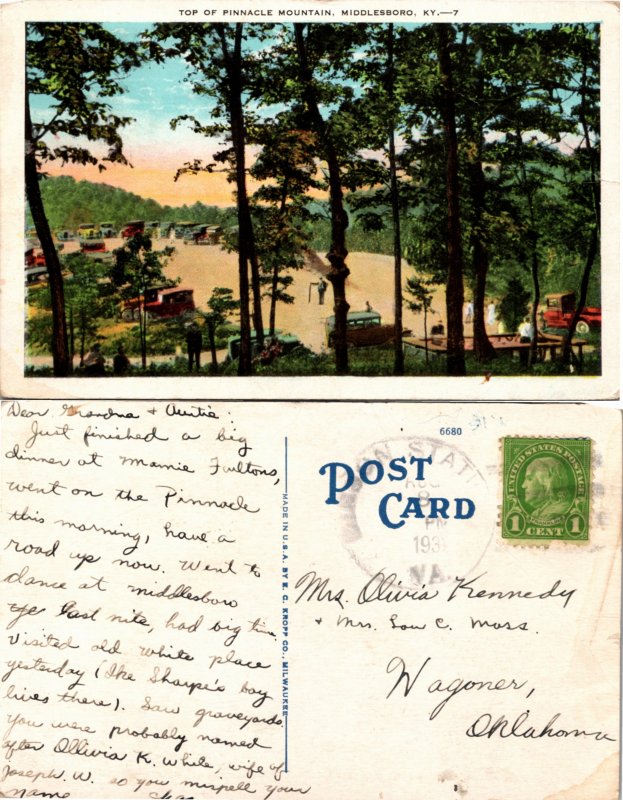 TOP OF PINNACLE MOUNTAIN, MIDDLESBORO, KY.—7
Dear Grandma & Auntie:
Just finished a big
dinner at Mamie Fultons,
went on the Pinnacle
this morning, have a
road up now. Went to
dance at middlesboro
last nite, had big time.
Visited old White place
yesterday (Ike Sharpe's boy
lives there). Saw graveyards.
you were probably named
after Ollivia K. White, wife of
Joseph W. so you misspell your
name.
MADE IN U.S.A. BY E. C. KROPP CO., MILWAUKEE
6680
POST
CARD
STAT
AUG
8
PM
193
VA.
UNITED STATES POSTAGE
FRANKLIN
1 CENT 1
Mrs. Olivia Kennedy
& Mrs. Lou C. Moss.
Wagoner,
Oklahoma